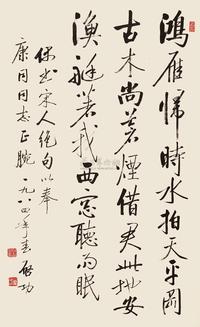 鴻雁歸時水拍天平岡
古木尚蒼煙借君此地安
漁艇著我西窗聽雨眠
宋人絕句以奉
康同同志正腕一九八四年春 啟功